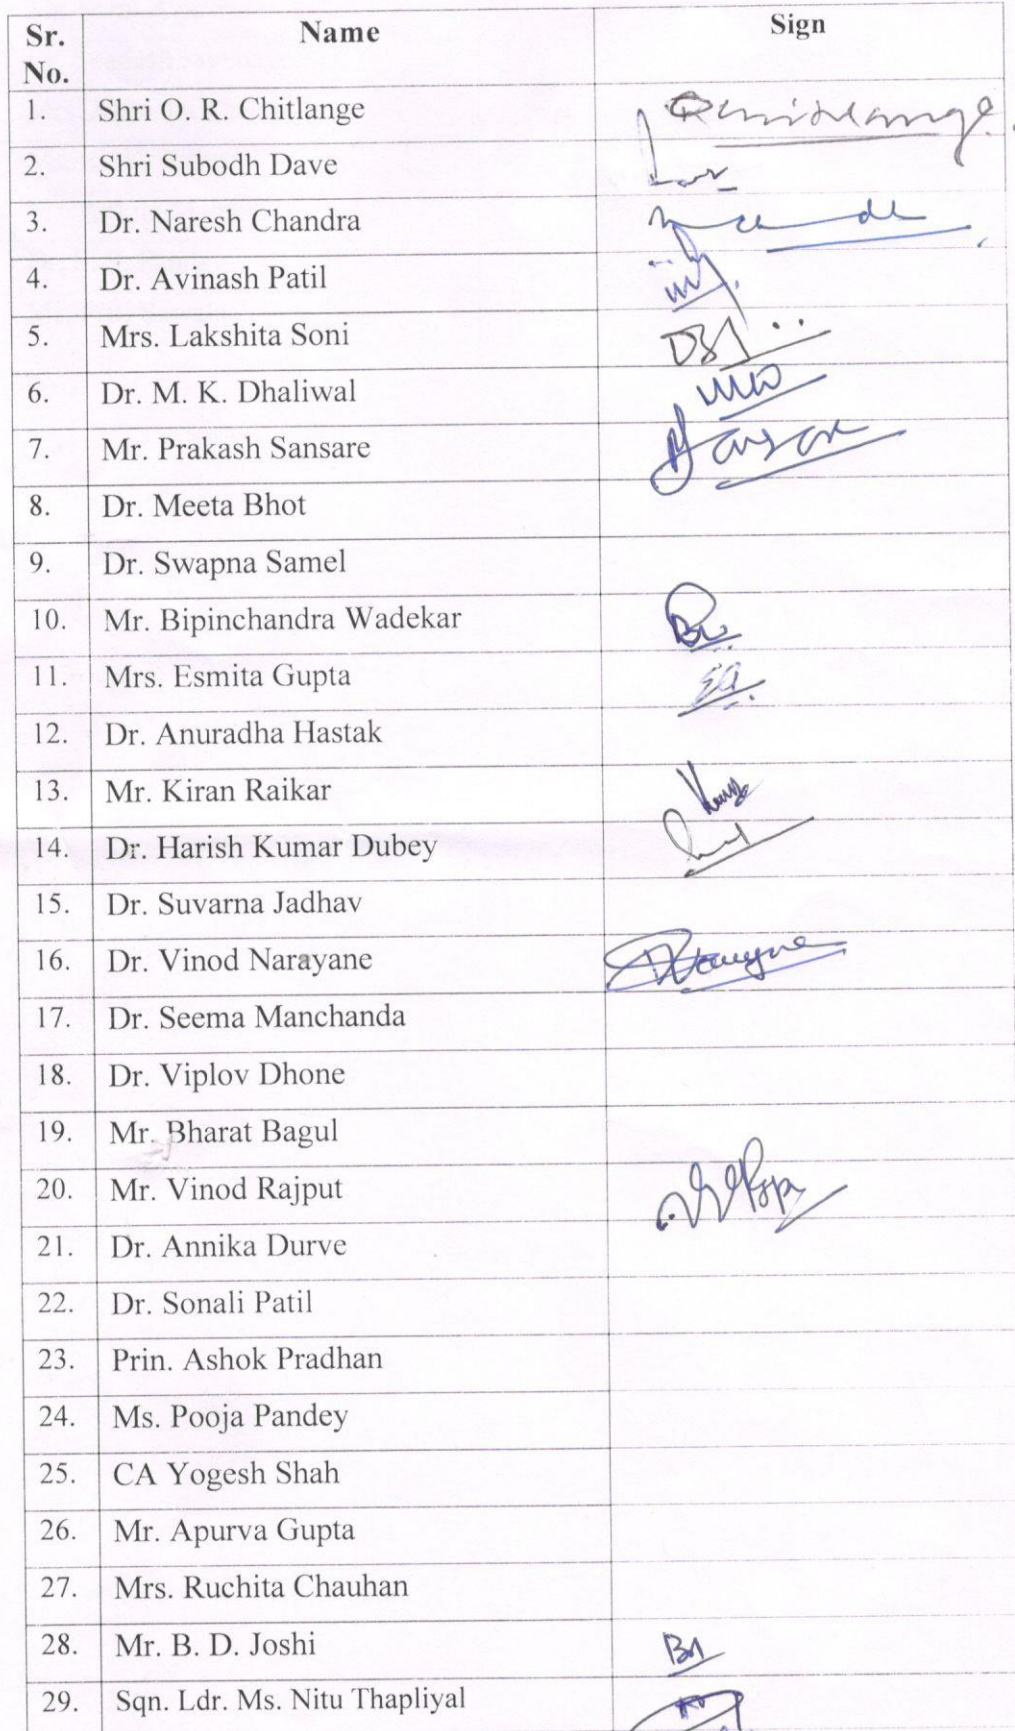 Sr. No. Name Sign
1. Shri O. R. Chitlange
2. Shri Subodh Dave
3. Dr. Naresh Chandra
4. Dr. Avinash Patil
5. Mrs. Lakshita Soni
6. Dr. M. K. Dhaliwal
7. Mr. Prakash Sansare
8. Dr. Meeta Bhot
9. Dr. Swapna Samel
10. Mr. Bipinchandra Wadekar
11. Mrs. Esmita Gupta
12. Dr. Anuradha Hastak
13. Mr. Kiran Raikar
14. Dr. Harish Kumar Dubey
15. Dr. Suvarna Jadhav
16. Dr. Vinod Narayane
17. Dr. Seema Manchanda
18. Dr. Viplov Dhone
19. Mr. Bharat Bagul
20. Mr. Vinod Rajput
21. Dr. Annika Durve
22. Dr. Sonali Patil
23. Prin. Ashok Pradhan
24. Ms. Pooja Pandey
25. CA Yogesh Shah
26. Mr. Apurva Gupta
27. Mrs. Ruchita Chauhan
28. Mr. B. D. Joshi
29. Sqn. Ldr. Ms. Nitu Thapliyal